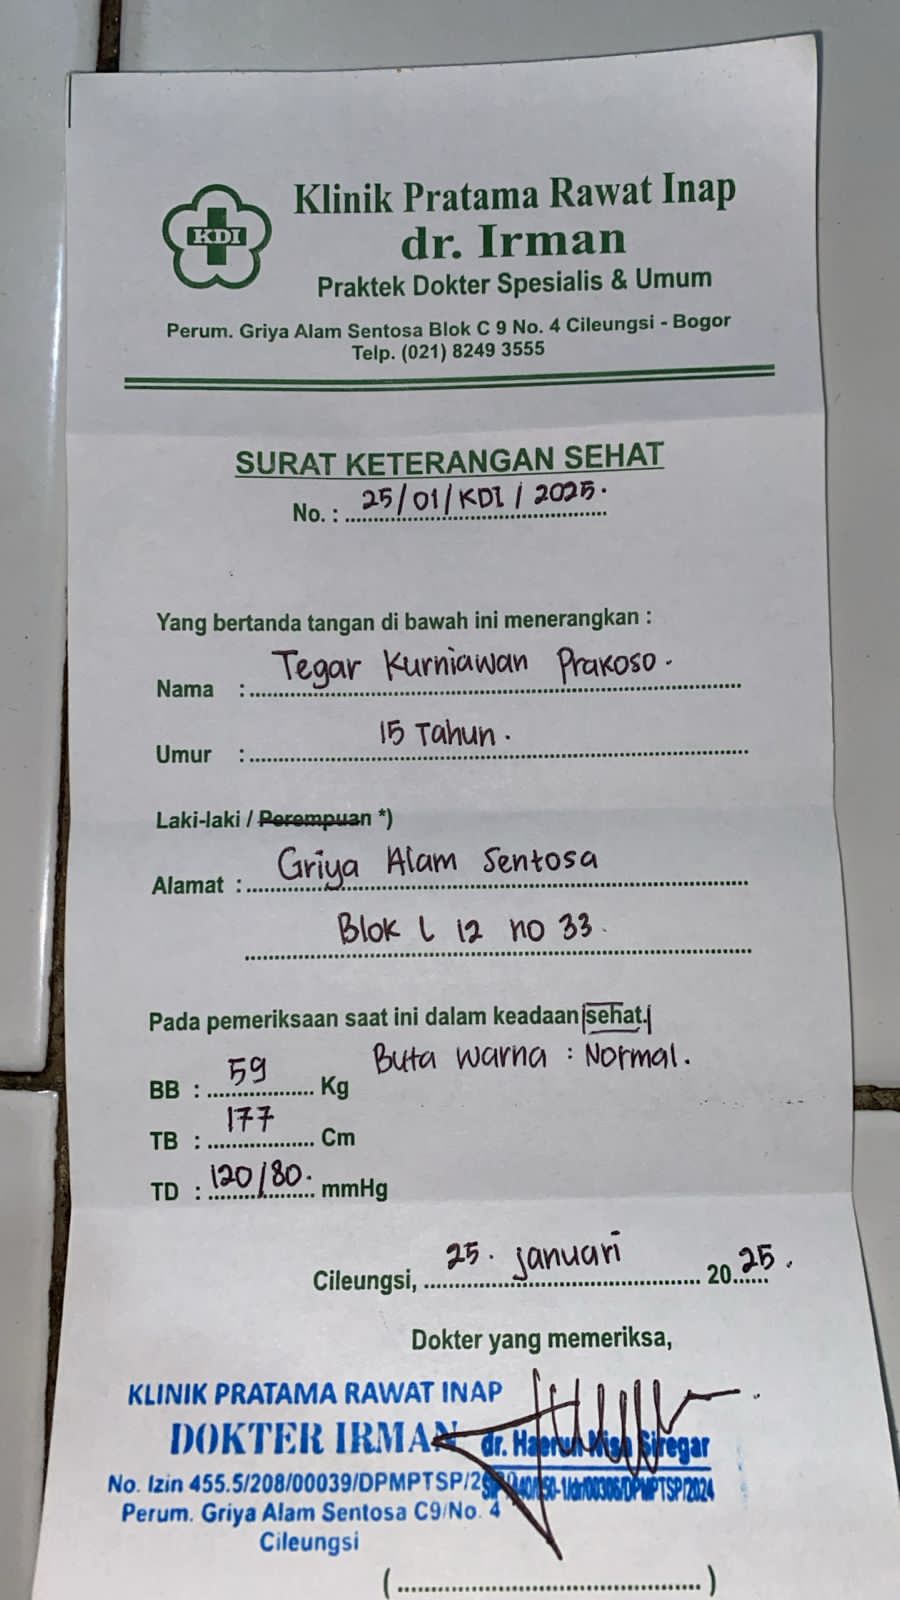 KDI
Klinik Pratama Rawat Inap
dr. Irman
Praktek Dokter Spesialis & Umum
Perum. Griya Alam Sentosa Blok C 9 No. 4 Cileungsi - Bogor
Telp. (021) 8249 3555
SURAT KETERANGAN SEHAT
No. : 25/01/KDI/2025.
Yang bertanda tangan di bawah ini menerangkan :
Nama : Tegar Kurniawan Prakoso.
Umur : 15 Tahun.
Laki-laki / Perempuan *)
Alamat : Griya Alam Sentosa
Blok L 12 no 33.
Pada pemeriksaan saat ini dalam keadaan sehat.
Buta warna : Normal.
BB : 59 Kg
TB : 177 Cm
TD : 120/80. mmHg
Cileungsi, 25. januari 2025.
Dokter yang memeriksa,
KLINIK PRATAMA RAWAT INAP
DOKTER IRMAN
dr. Siregar
No. Izin 455.5/208/00039/DPMPTSP/2
Perum. Griya Alam Sentosa C9/No. 4
Cileungsi
(....................)